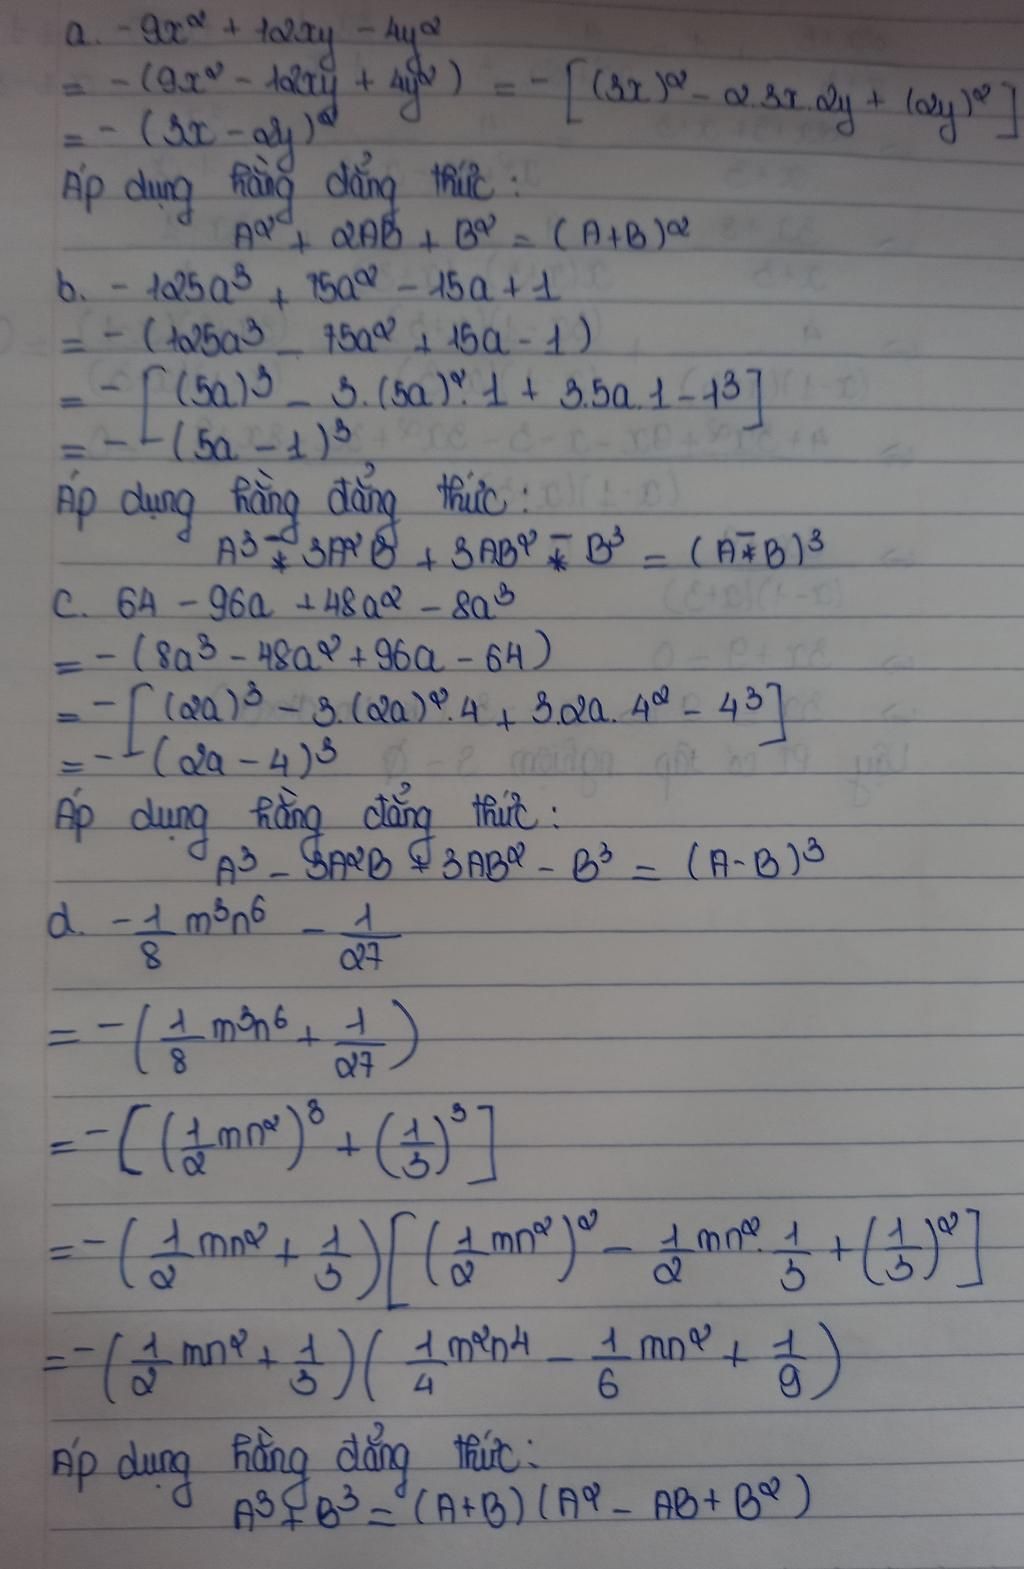 a. -9x² + 12xy - 4y²
= -(9x² - 12xy + 4y²) = -[(3x)² - 2.3x.2y + (2y)²]
= -(3x - 2y)²
Áp dụng hằng đẳng thức:
A² + 2AB + B² = (A+B)²
b. -125a³ + 75a² - 15a + 1
= -(125a³ - 75a² + 15a - 1)
= -[(5a)³ - 3.(5a)².1 + 3.5a.1 - 1³]
= -(5a - 1)³
Áp dụng hằng đẳng thức:
A³ - 3A²B + 3AB² - B³ = (A - B)³
c. 64 - 96a + 48a² - 8a³
= -(8a³ - 48a² + 96a - 64)
= -[(2a)³ - 3.(2a)².4 + 3.2a.4² - 4³]
= -(2a - 4)³
Áp dụng hằng đẳng thức:
A³ - 3A²B + 3AB² - B³ = (A-B)³
d. -1/8 m³n⁶ - 1/27
= -(1/8 m³n⁶ + 1/27)
= -[(1/2 mn²)³ + (1/3)³]
= -(1/2 mn² + 1/3)[(1/2 mn²)² - 1/2 mn².1/3 + (1/3)²]
= -(1/2 mn² + 1/3)(1/4 m²n⁴ - 1/6 mn² + 1/9)
Áp dụng hằng đẳng thức:
A³ + B³ = (A+B)(A² - AB + B²)